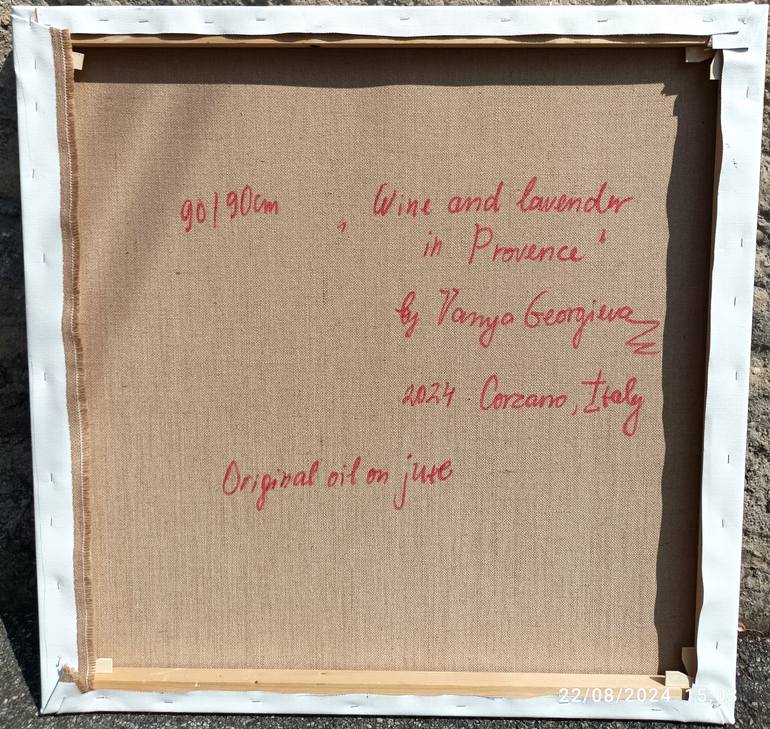 90/90cm „ Wine and lavender
in Provence "
by Vanya Georgieva
2024 Corzano, Italy
Original oil on jute
22/08/2024 15:03